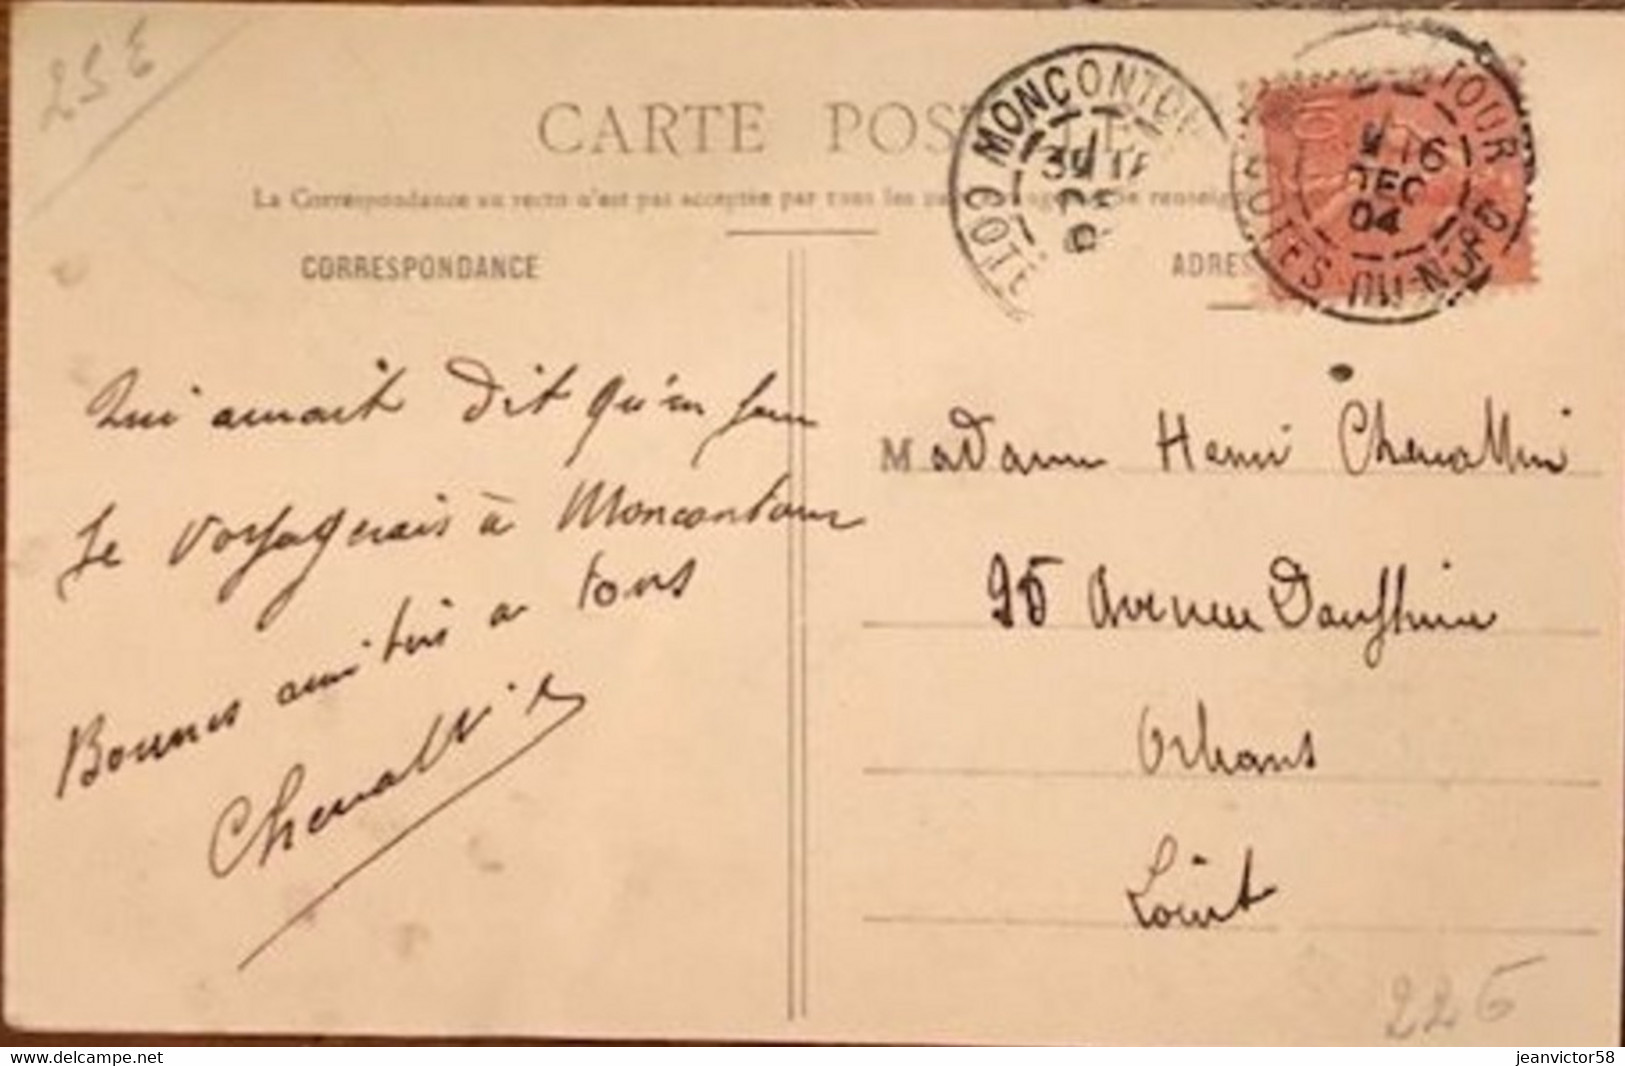 25€
CARTE POSTALE
La Correspondance au recto n'est pas acceptée par tous les pays
CORRESPONDANCE
ADRES
MONCONTOUR
COTE
TOUR
16
DEC
04
COTES-DU-NORD
Qui aurait dit qu'un jour
Je voyagerais à Moncontour
Bonnes amitiés a tous
Chevallier
Madame Henri Chevallier
25 Avenue Dauphine
Orléans
Loiret
22€
jeanvictor58